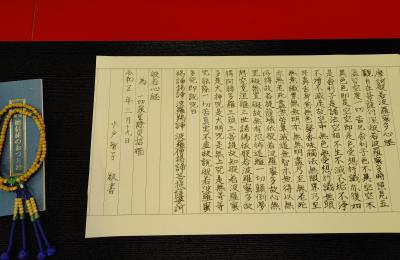 摩訶般若波羅蜜多心経
観自在菩薩行深般若波羅蜜多時照見五
蘊皆空度一切苦厄舎利子色不異空空不
異色色即是空空即是色受想行識亦復如
是舎利子是諸法空相不生不滅不垢不浄
不増不減是故空中無色無受想行識無眼
耳鼻舌身意無色声香味触法無眼界乃至
無意識界無無明亦無無明尽乃至無老死
亦無老死尽無苦集滅道無智亦無得以無
所得故菩提薩埵依般若波羅蜜多故心無
罣礙無罣礙故無有恐怖遠離一切顛倒夢
想究竟涅槃三世諸仏依般若波羅蜜多故
得阿耨多羅三藐三菩提故知般若波羅蜜
多是大神呪是大明呪是無上呪是無等等
呪能除一切苦真実不虚故説般若波羅蜜
多呪即説呪曰
羯諦羯諦波羅羯諦波羅僧羯諦菩提薩婆訶
般若心経
為 一切
令和五年三月十九日
敬書